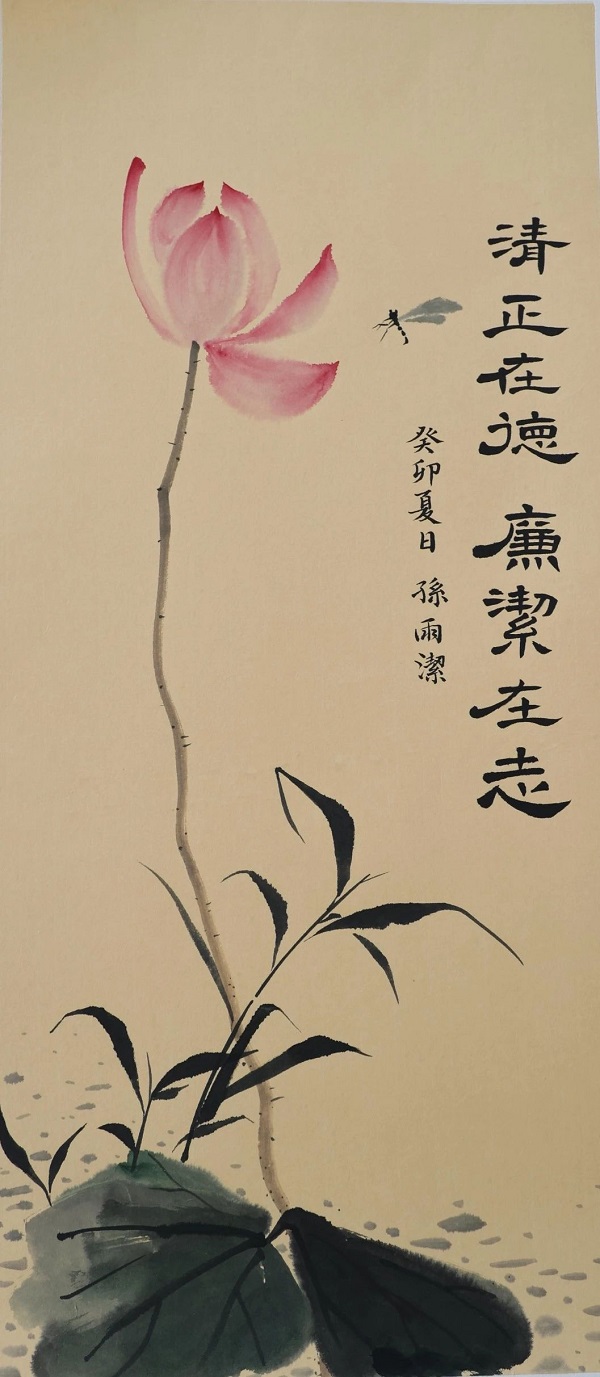 清正在德 廉潔在志
癸卯夏日 孫雨潔